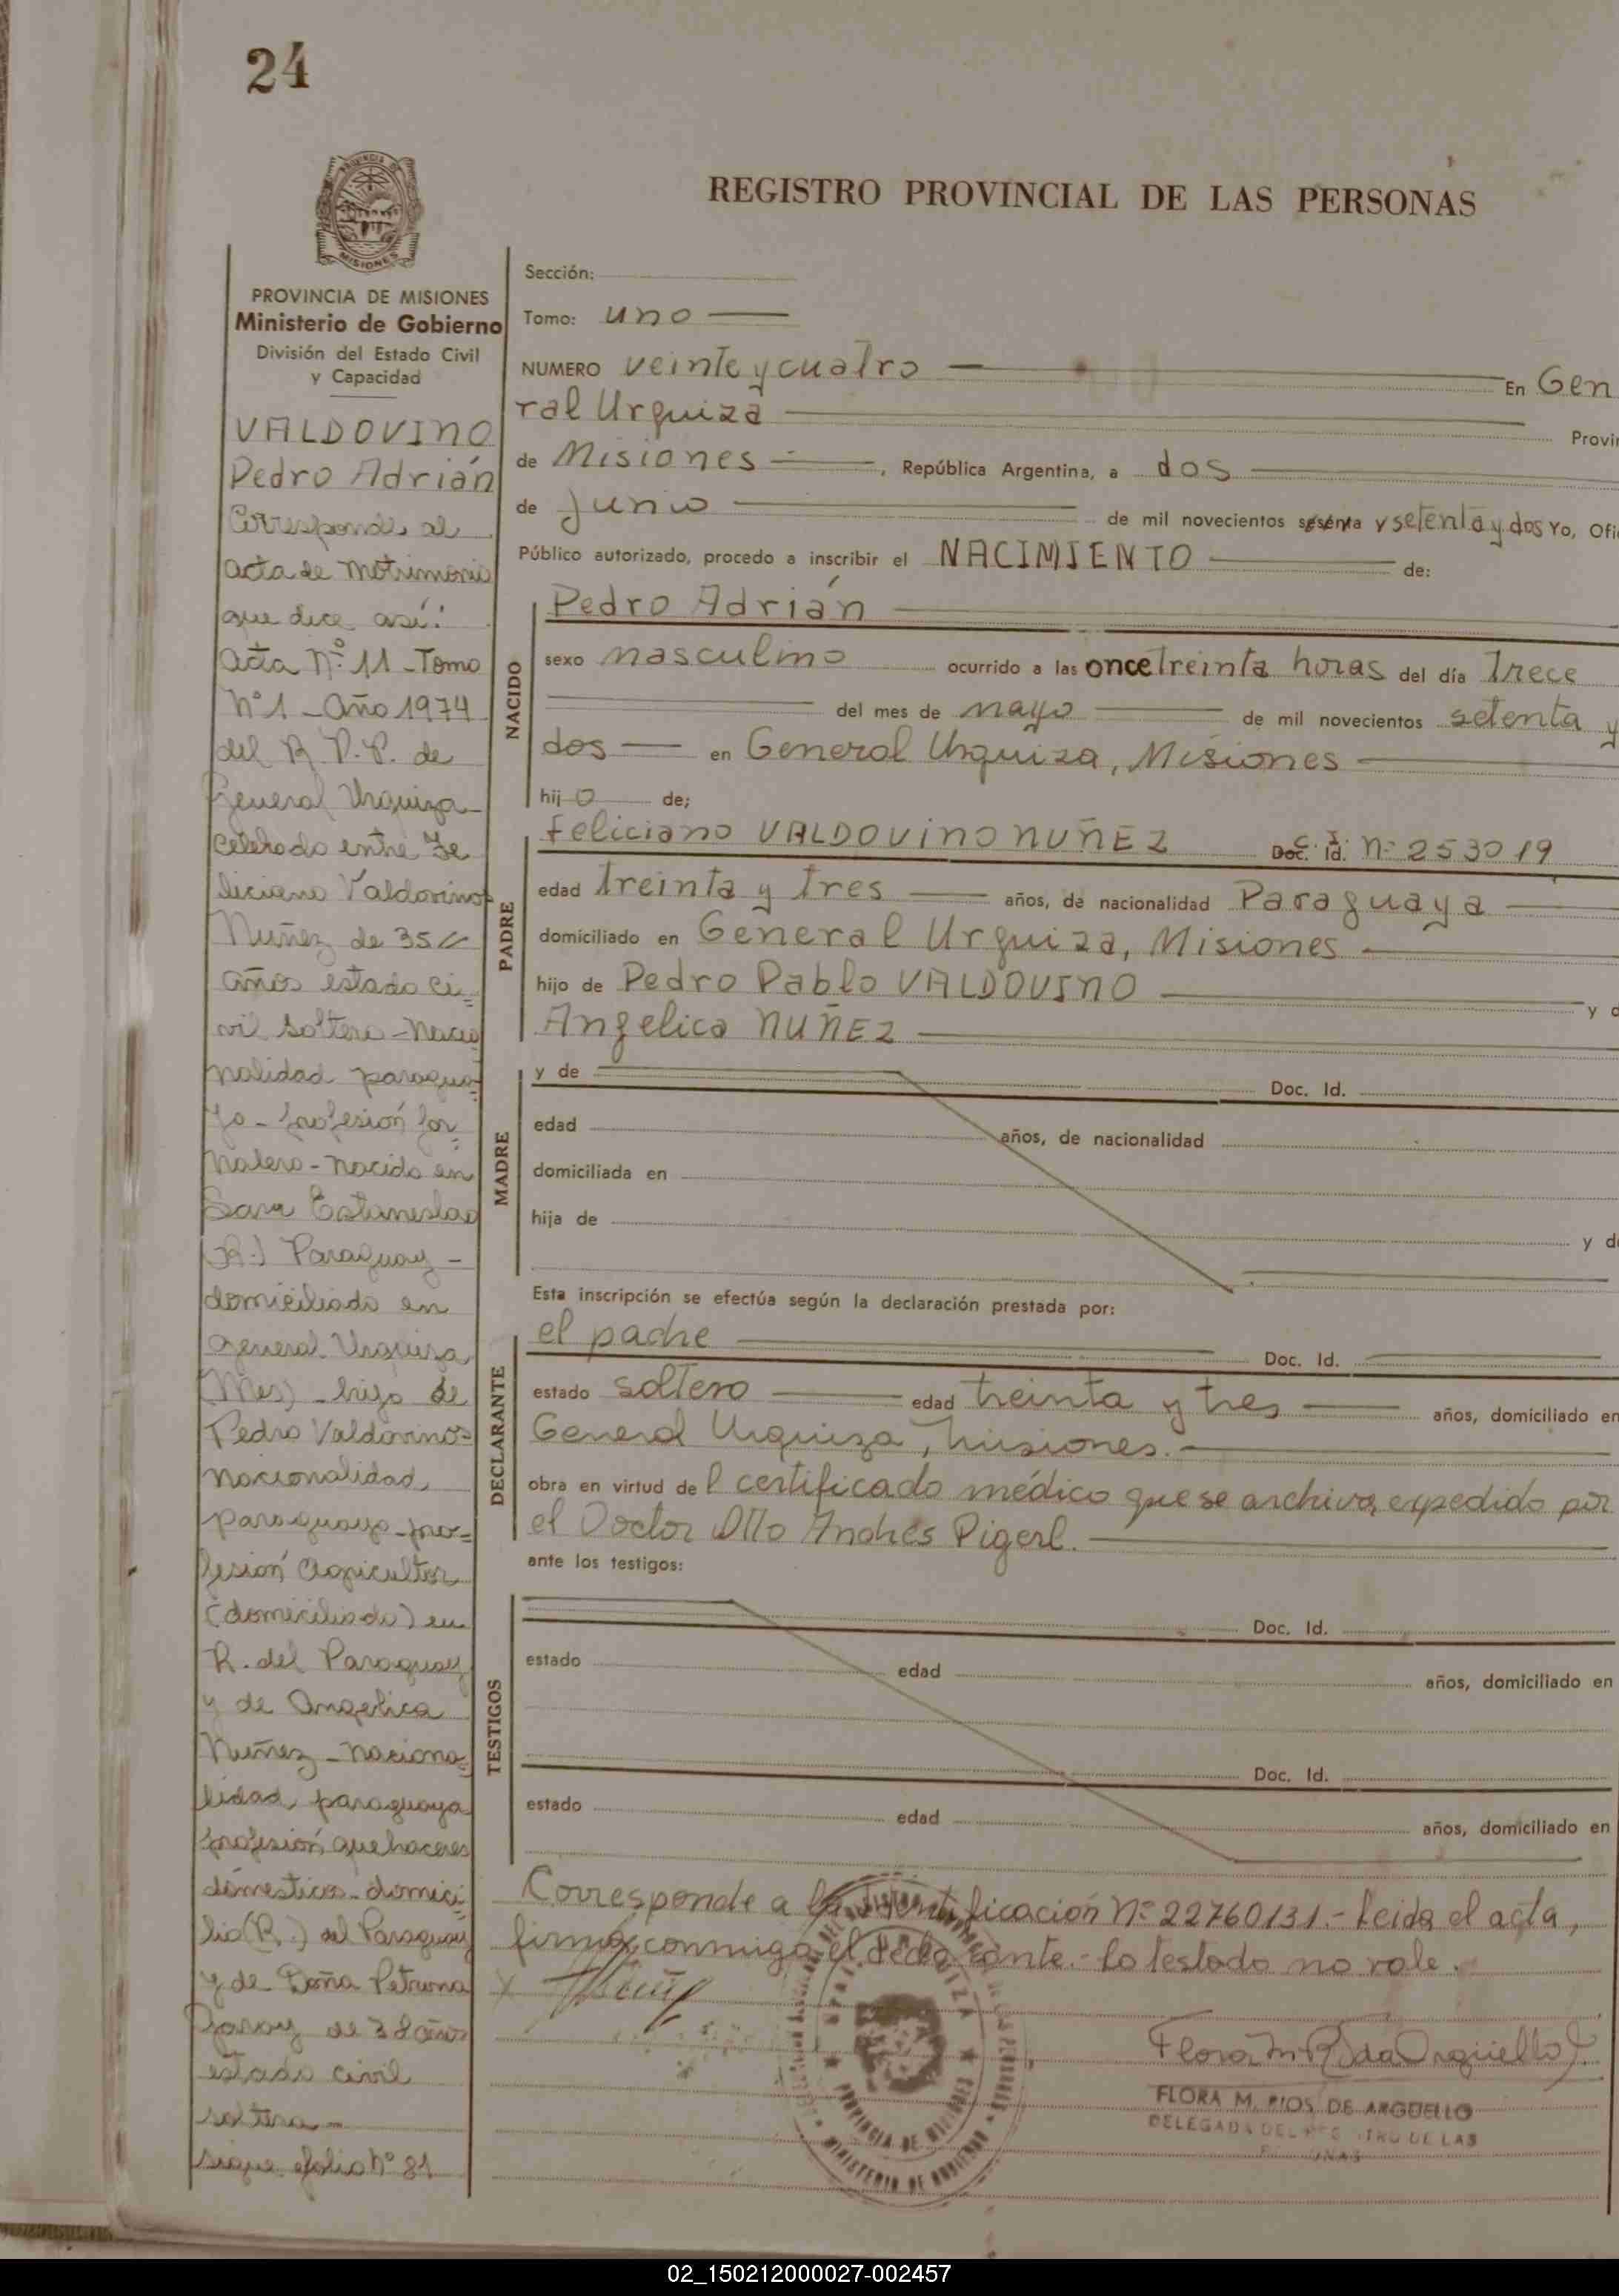 24
REGISTRO PROVINCIAL DE LAS PERSONAS
PROVINCIA DE MISIONES
Ministerio de Gobierno
División del Estado Civil
y Capacidad
VALDOVINO
Pedro Adrián
Corresponde al
acta de Matrimonio
que dice así:
Acta Nº 11 - Tomo
Nº 1 - Año 1974
del R. P. P. de
General Urquiza -
celebrado entre Fe
liciano Valdovinos
Nuñez de 35
años estado ci=
vil soltero - nacio
nalidad paragua=
yo - profesión jor=
nalero - nacido en
San Estanislao
(R.) Paraguay -
domiciliado en
General Urquiza
(Mes) - hijo de
Pedro Valdovinos=
nacionalidad
paraguayo - pro=
fesión Agricultor
(domiciliado) en
R. del Paraguay
y de Angelica
Nuñez - naciona=
lidad paraguaya
profesión quehaceres
domesticos - domici=
lio (R.) del Paraguay
y de Doña Petrona
Garay de 38 años
estado civil
soltera -
sigue folio Nº 81
Sección:
Tomo: uno
NUMERO veinte y cuatro En Gen
ral Urquiza Provin
de Misiones, República Argentina, a dos
de junio de mil novecientos sesenta y setenta y dos Yo, Ofi
Público autorizado, procedo a inscribir el NACIMIENTO de:
NACIDO
Pedro Adrián
sexo masculino ocurrido a las once treinta horas del día Trece
del mes de mayo de mil novecientos setenta y
dos en General Urquiza, Misiones
hijo de;
PADRE
Feliciano VALDOVINO NUÑEZ Doc. Id. C. I. Nº 253019
edad treinta y tres años, de nacionalidad Paraguaya
domiciliado en General Urquiza, Misiones
hijo de Pedro Pablo VALDOVINO y d
Angelica NUÑEZ
MADRE
y de Doc. Id.
edad años, de nacionalidad
domiciliada en
hija de y de
Esta inscripción se efectúa según la declaración prestada por:
DECLARANTE
el padre Doc. Id.
estado soltero edad treinta y tres años, domiciliado en
General Urquiza, Misiones.
obra en virtud del certificado médico que se archiva, expedido por
el Doctor Otto Andrés Pigerl.
ante los testigos:
TESTIGOS
Doc. Id.
estado edad años, domiciliado en
Doc. Id.
estado edad años, domiciliado en
Corresponde a la identificación Nº 22760131.- Leida el acta,
firma conmigo el declarante.- Lo testado no vale.
X
Flora M R de Argüello
FLORA M. RIOS DE ARGÜELLO
DELEGADA DEL REGISTRO DE LAS
PERSONAS
PROVINCIA DE MISIONES
MINISTERIO DE GOBIERNO
02_150212000027-002457